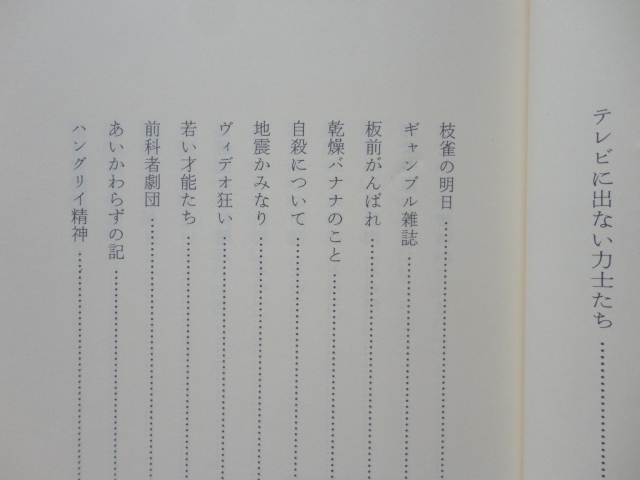 テレビに出ない力士たち
枝雀の明日
ギャンブル雑誌
板前がんばれ
乾燥バナナのこと
自殺について
地震かみなり
ヴィデオ狂い
若い才能たち
前科者劇団
あいかわらずの記
ハングリイ精神